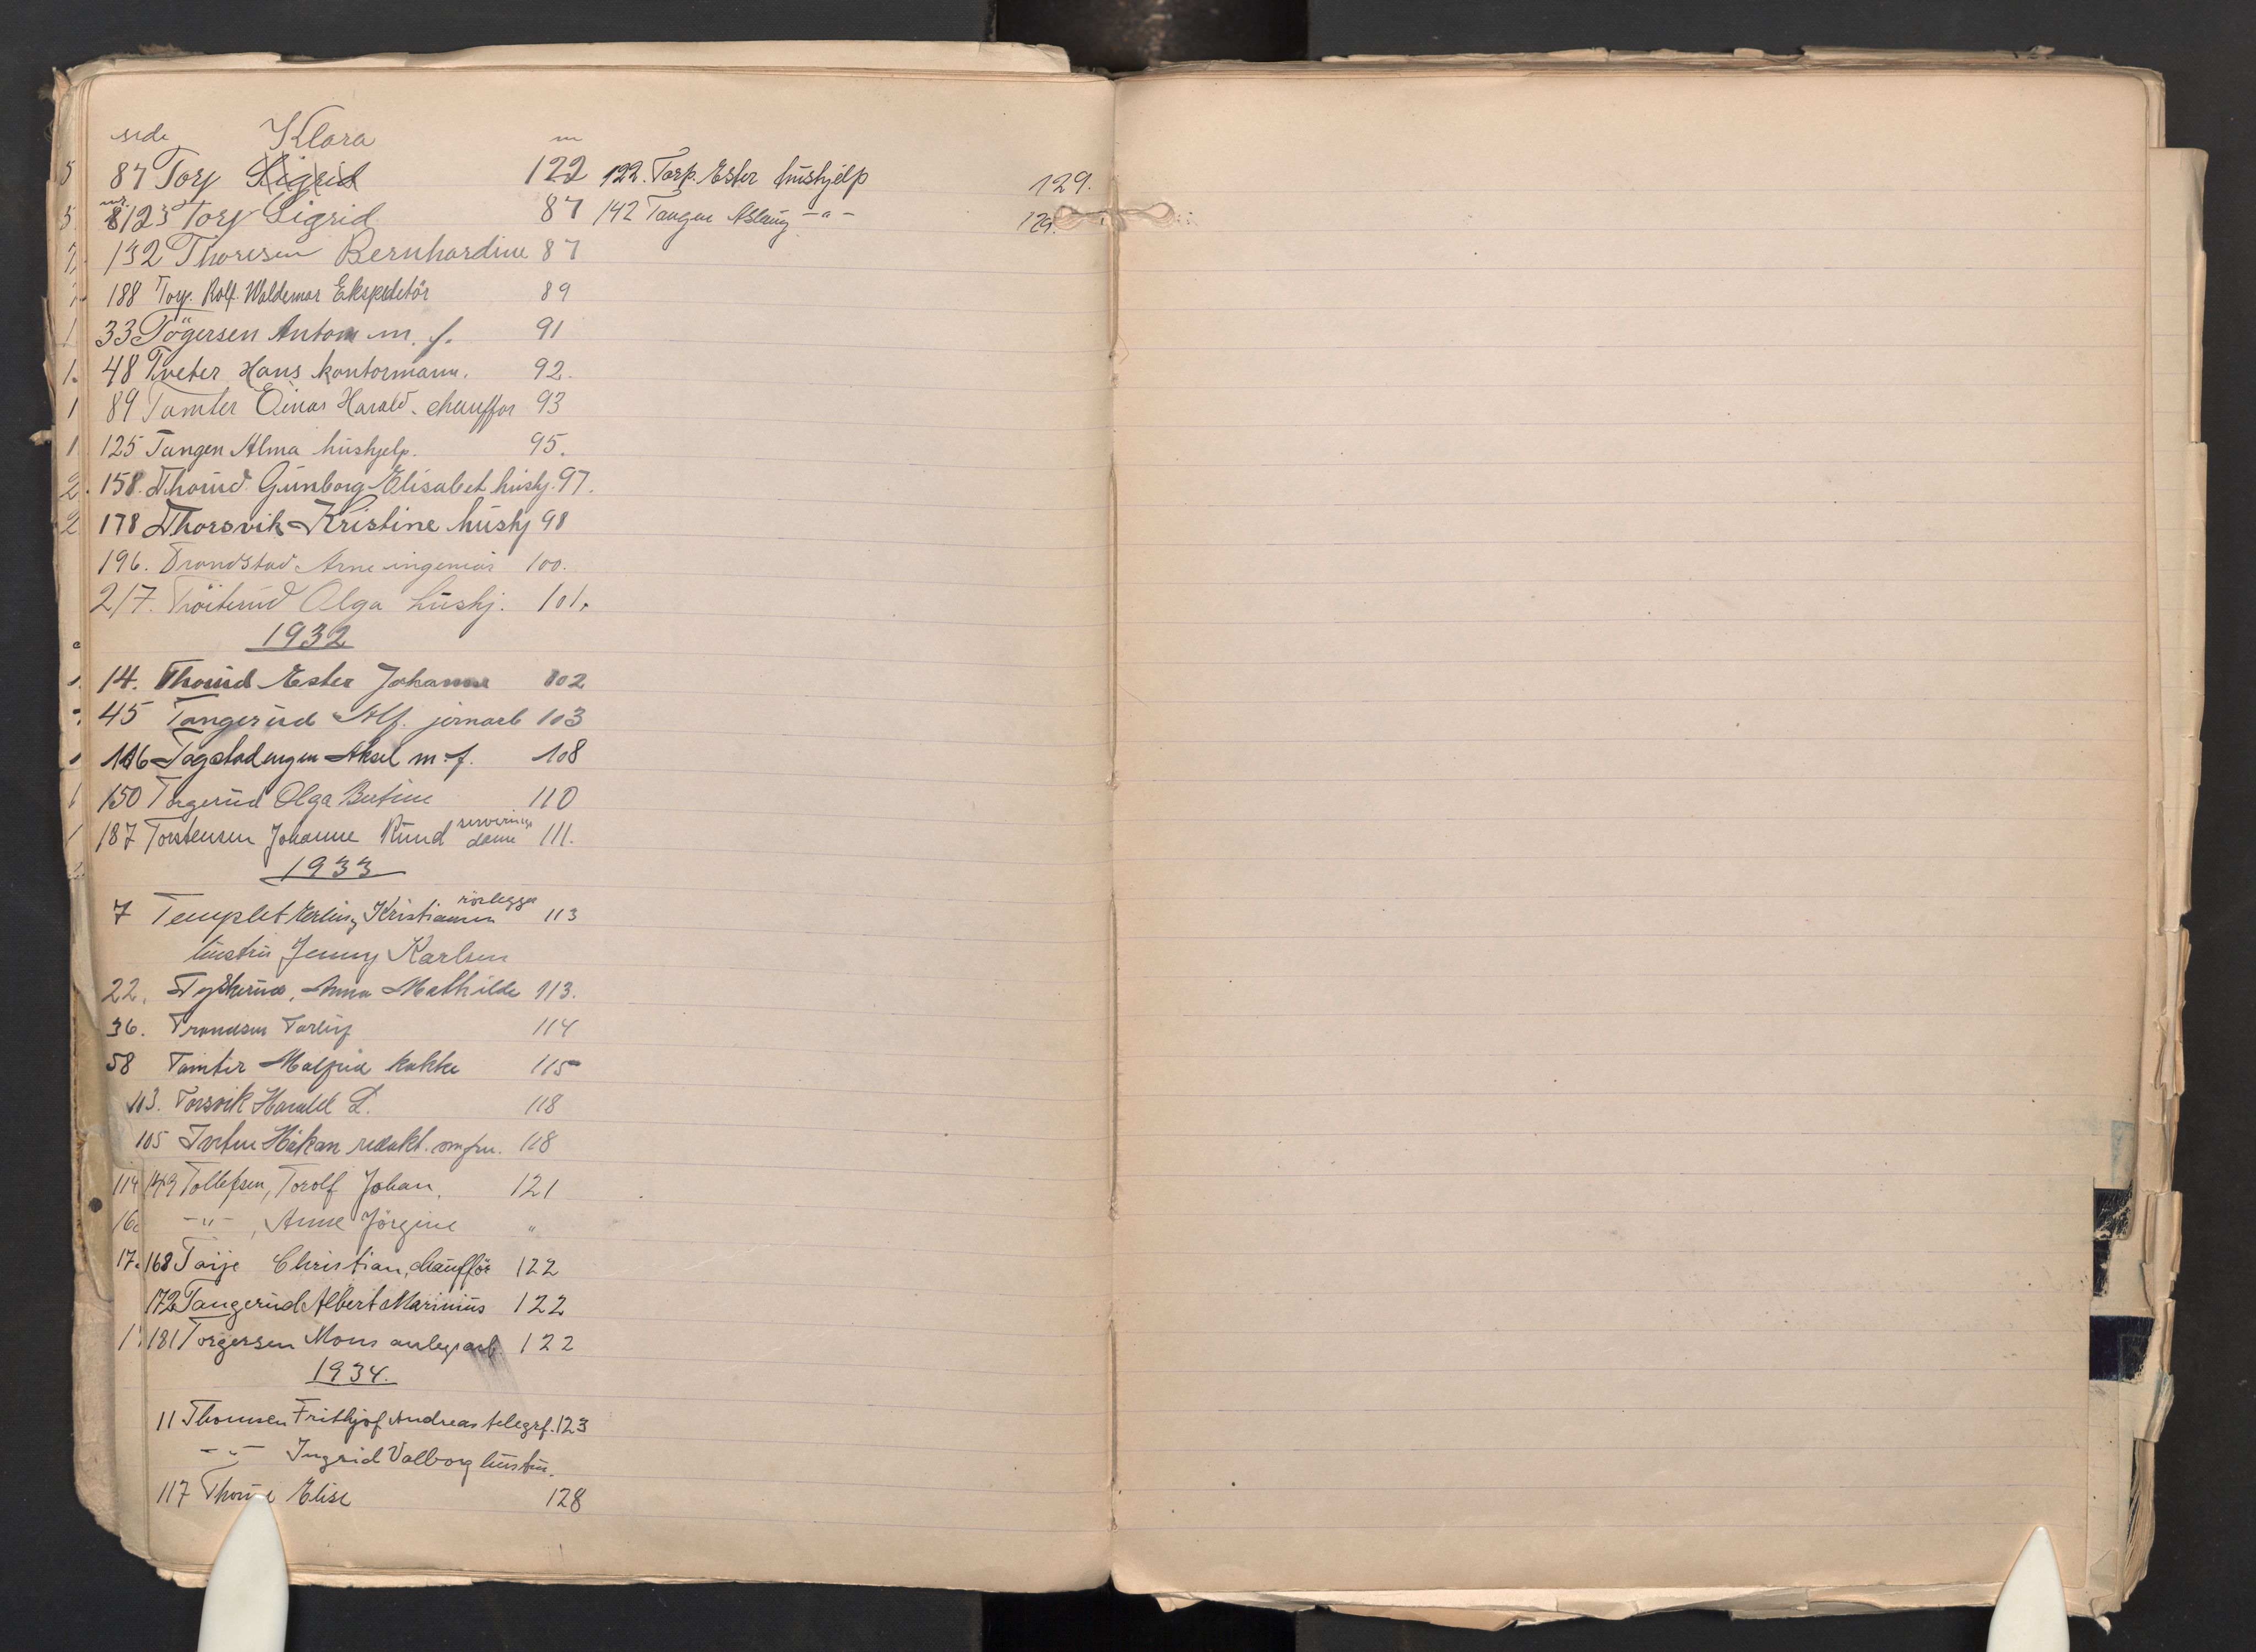 side Klara nr
87 Torp Sigrid 122
nr. 123 Torp Sigrid 87
132 Thoresen Bernhardine 87
188 Torp. Rolf. Waldemar Ekspeditör 89
33 Tögersen Anton m. f. 91
48 Tveter Hans kontormann. 92.
89 Tamter Einar Harald. chauffør 93
125 Tangen Alma hushjelp. 95.
158. Thorud Gunborg Elisabet hushj. 97.
178 Thorsvik Kristine hushj 98
196. Trandstad Arne ingeniör 100.
217. Tröiterud Olga hushj. 101.
1932
14. Thorud Ester Johanne 102
45 Tangerud Alf. jernarb 103
116 Togstadengen Aksel m. f. 108
150 Torgerud Olga Bertine 110
187 Torstensen Johanne Rund serverings dame 111.
1933
7 Templet Erling Kristiansen rörlegger 113
hustru Jenny Karlsen
22. Tyskerud, Anna Mathilde 113.
36. Trondsen Torleif 114
58 Tamter Malfrid kokke 115
113. Torsvik Harald L. 118
105 Håkan redakt. 118
149 Tollefsen, Torolf Johan. 121
-"- , Anne Jörgine "
168 Taije Christian, chaufför 122
172 Tangerud Albert Marinius 122
181 Torgersen Mons anlegsarb. 122
1934.
11 Thomsen Frithjof Andreas telegrf. 123
-"- Ingrid Valborg hustru.
117 Elise 128
122. Torp. Ester hushjelp 129.
142 Tangen Aslaug -"- 129.